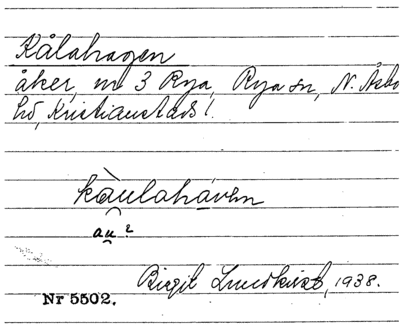 Kålahagen
åker, nr 3 Rya, Rya sn, N. Åsbo
hd, Kristianstads l.
kàulahávен
au ?
Birgit Lundkvist, 1938.
Nr 5502.